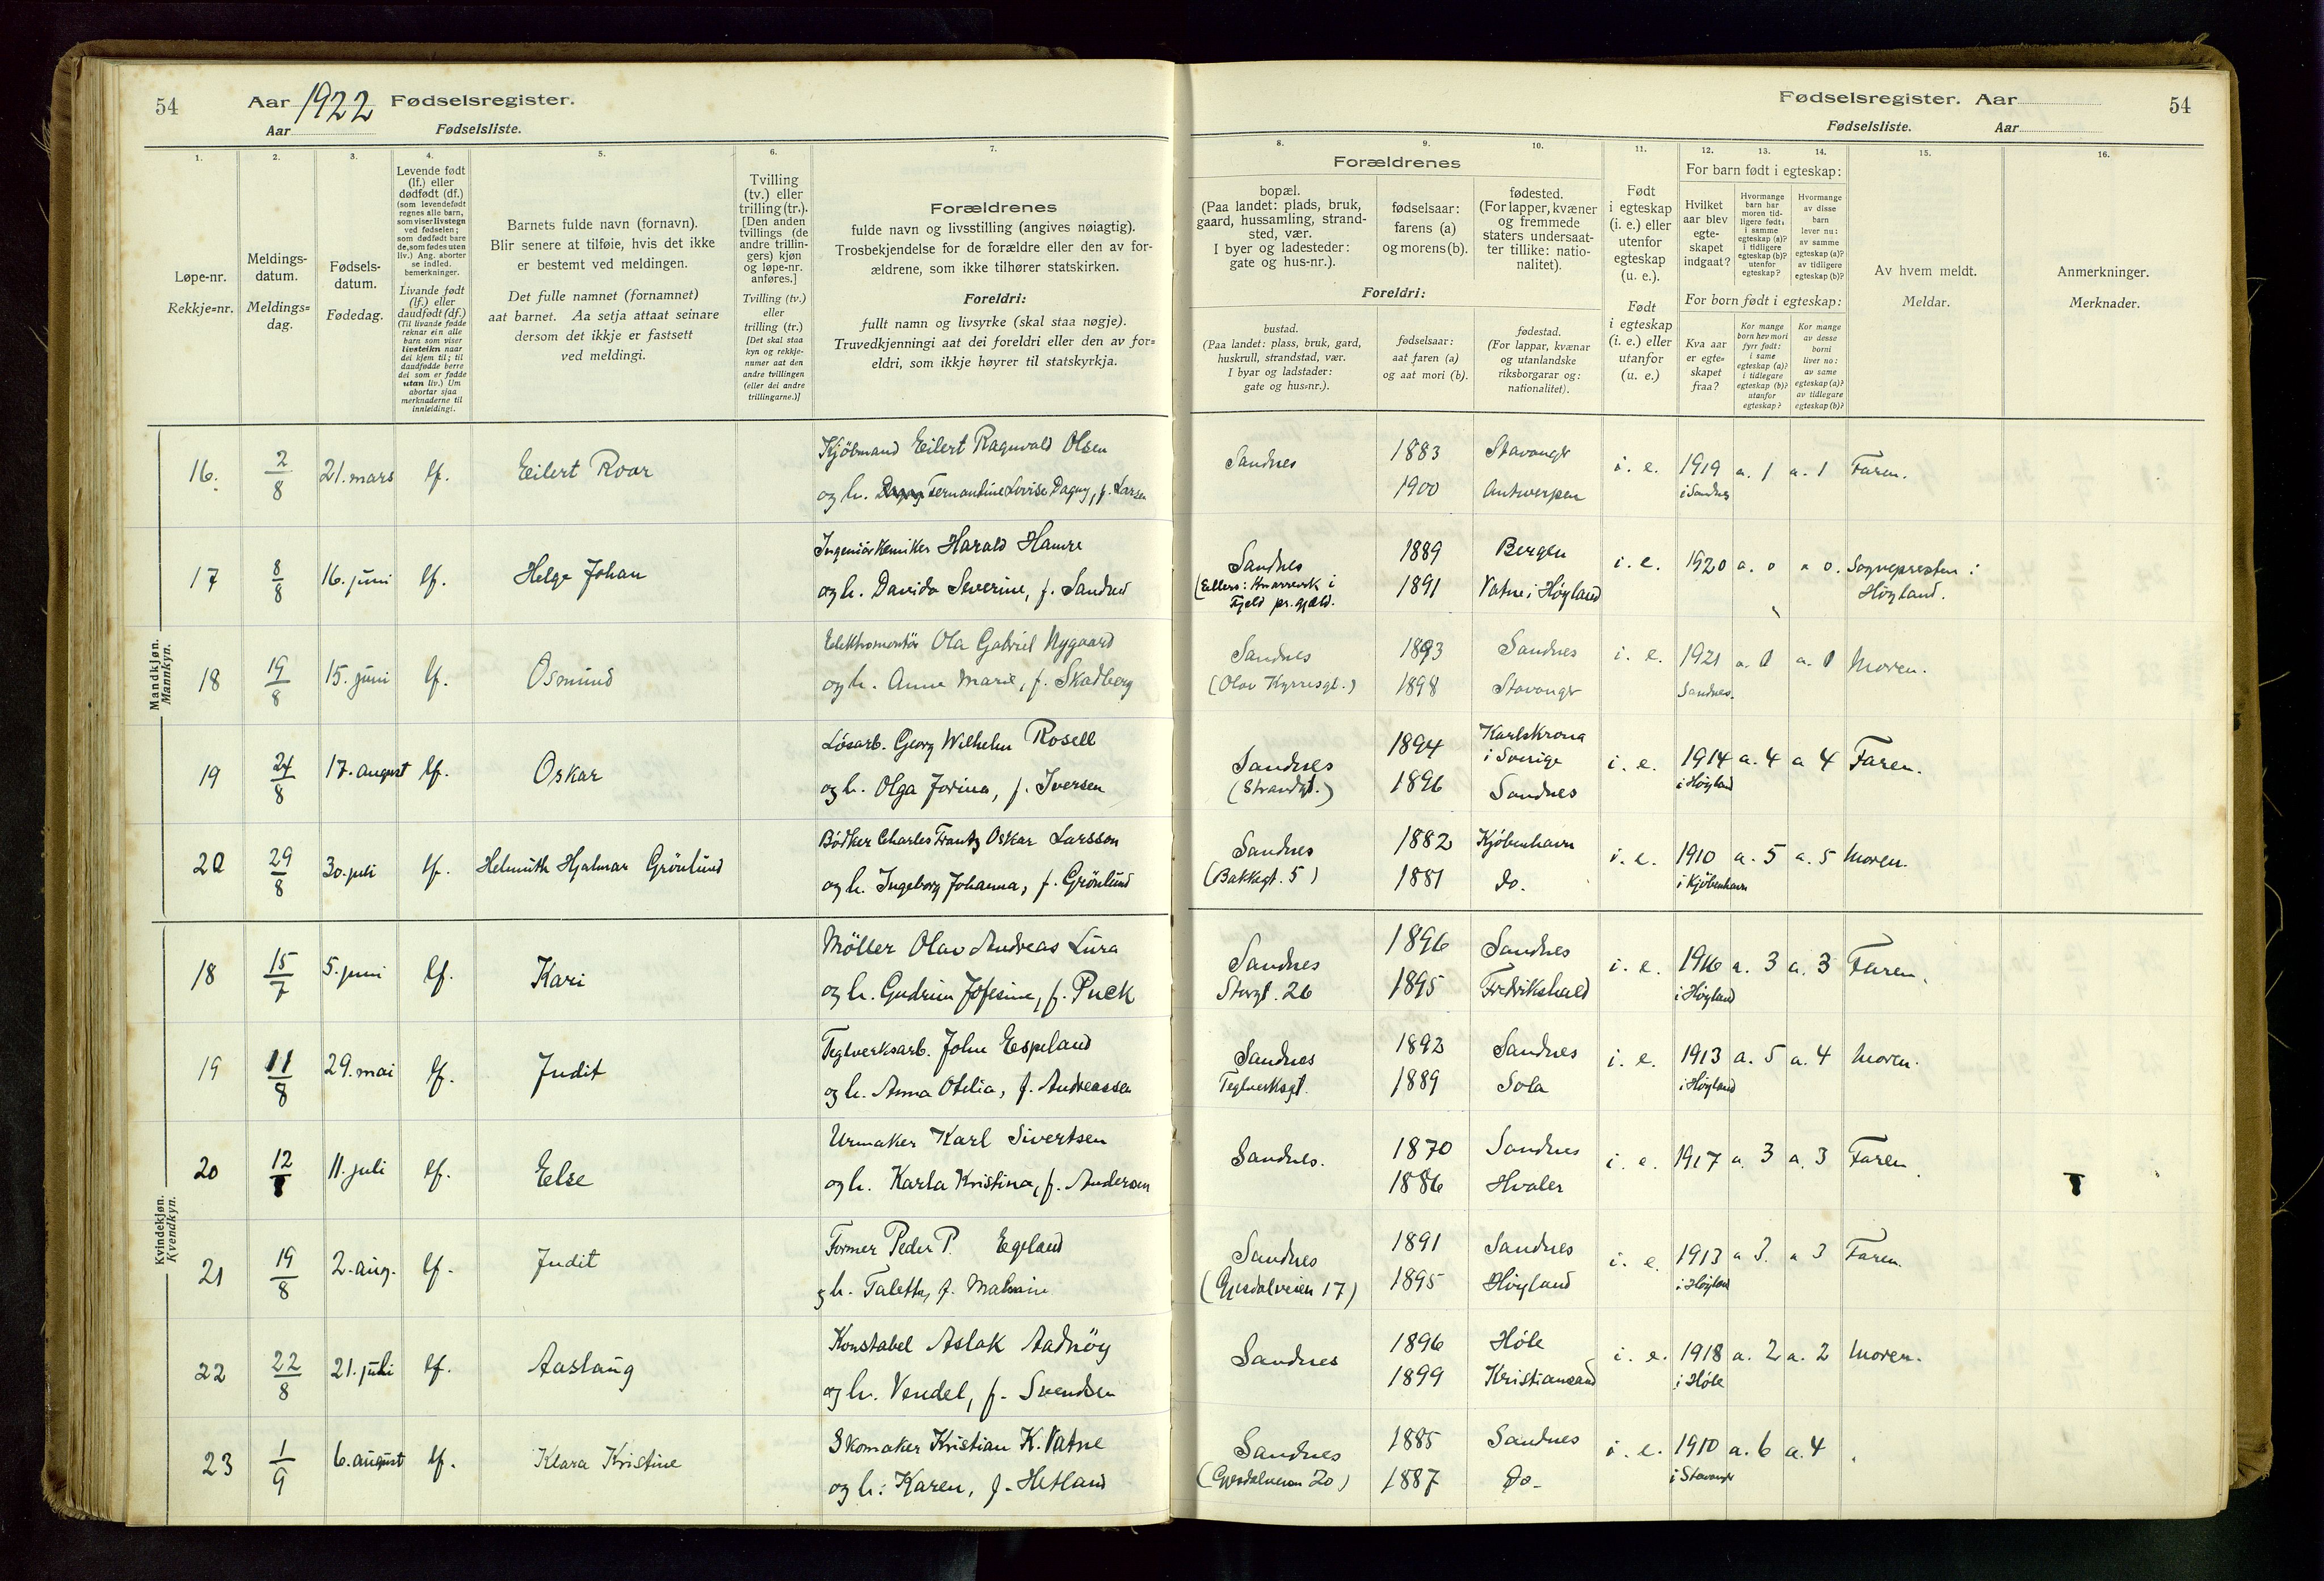 54 Aar 1922 Fødselsregister.
Aar Fødselsliste.
Fødselsregister. Aar 54
Fødselsliste. Aar
1. 2. 3. 4. 5. 6. 7. 8. 9. 10. 11. 12. 13. 14. 15. 16.
Løpe-nr.
Rekkje=nr.
Meldings-
datum.
Meldings=
dag.
Fødsels-
datum.
Fødedag.
Levende født
(lf.) eller
dødfødt (df.)
(som levendefødt
regnes alle barn,
som viser livstegn
ved fødselen;
som dødfødt bare
de, som fødes uten
liv.) Ang. aborter
se indled.
bemerkninger.
Livande født
(lf.) eller
daudfødt (df.)
(Til livande fødde
reknar ein alle
barn som viser
livsteikn naar
dei kjem til; til
daudfødde berre
dei som er fødde
utan liv.) Um
abortar sjaa
merknaderne til
innleidingi.
Barnets fulde navn (fornavn).
Blir senere at tilføie, hvis det ikke
er bestemt ved meldingen.
Det fulle namnet (fornamnet)
aat barnet. Aa setja attaat seinare
dersom det ikkje er fastsett
ved meldingi.
Tvilling
(tv.) eller
trilling (tr.).
[Den anden
tvillings (de
andre trillin-
gers) kjøn
og løpe-nr.
anføres.]
Tvilling (tv.)
eller
trilling (tr.)
[Det skal staa
kyn og rekkje-
numer aat den
andre tvillingen
(eller dei andre
trillingarne.)]
Forældrenes
fulde navn og livsstilling (angives nøiagtig).
Trosbekjendelse for de forældre eller den av for-
ældrene, som ikke tilhører statskirken.
Foreldri:
fullt namn og livsyrke (skal staa nøgje).
Truvedkjenningi aat dei foreldri eller den av for=
eldri, som ikkje høyrer til statskyrkja.
Forældrenes
bopæl.
(Paa landet: plads, bruk,
gaard, hussamling, strand-
sted, vær.
I byer og ladesteder:
gate og hus-nr.).
fødselsaar:
farens (a)
og morens (b).
fødested.
(For lapper, kvæner
og fremmede
staters undersaat-
ter tillike: natio-
nalitet).
Foreldri:
bustad.
(Paa landet: plass, bruk, gard,
huskrull, strandstad, vær.
I byar og ladstader:
gate og hus=nr.).
fødselsaar:
aat faren (a)
og aat mori (b).
fødestad.
(For lappar, kvænar
og utanlandske
riksborgarar og:
nationalitet).
Født
i egteskap
(i. e.) eller
utenfor
egteskap
(u. e.).
Født
i egteskap
(i. e.) eller
utanfor
(u. e.)
For barn født i egteskap:
Hvilket
aar blev
egte-
skapet
indgaat?
Hvormange
barn har
moren tid-
ligere født:
i samme
egteskap (a)?
i tidligere
egteskap (b)?
utenfor
egteskap?
Hvormange
av disse
barn
lever nu:
av samme
egteskap (a)?
av tidligere
egteskap (b)?
For born født i egteskap:
Kva aar
er egte=
skapet
fraa?
Kor mange
born hev mori
fyrr født:
i same
egteskap (a)?
i tidlegare
egteskap (b)?
utanfor
egteskap?
Kor mange
av desse
borni
liver no:
av same
egteskap (a)?
av tidlegare
egteskap (b)?
Av hvem meldt.
Meldar.
Anmerkninger.
Merknader.
Mandkjøn.
Mannkyn.
16. 2/8 21. mars lf. Eilert Roar Kjöbmand Eilert Ragnvald Olsen
og h. Fernandine Lovise Dagny, f. Larsen
Sandnes 1883 Stavanger i. e. 1919 a. 1 a. 1 Faren.
1900 Antwerpen i Sandnes
17 8/8 16. juni lf. Helge Johan Ingeniörkemiker Harald Hamre
og h. Davida Severine, f. Sandnes
Sandnes 1889 Bergen i. e. 1920 a. 0 a 0. Sognepresten i
(Ellers: Knarrevik i 1891 Vatne i Høyland Høyland.
Fjeld pr.gjæld.
18 19/8 15. juni lf. Osmund Elektromontör Ola Gabriel Nygaard
og h. Anne Marie, f. Skadberg
Sandnes 1893 Sandnes i. e. 1921 a. 0 a. 0 Moren.
(Olav Kyrresgt.) 1898 Stavanger Sandnes.
19 24/8 17. august lf. Oskar Lösarb. Georg Wilhelm Rosell
og h. Olga Jorina, f. Iversen
Sandnes 1894 Karlskrona i Sverige i. e. 1914 a. 4 a 4 Faren.
(Strandgt.) 1896 Sandnes i Höyland
20 29/8 30. juli lf. Helmuth Hjalmar Grönlund Bödker Charles Frantz Oskar Larsson
og h. Ingeborg Johanna, f. Grönlund
Sandnes 1882 Kjöbenhavn i. e. 1910 a. 5 a. 5 Moren.
(Bakkegt. 5) 1881 do. i Kjöbenhavn
Kvindekjøn.
Kvendkyn.
18 15/7 5. juni lf. Kari Möller Olav Andreas Lura
og h. Gudrun Josefine, f. Puck
Sandnes 1896 Sandnes i. e. 1916 a. 3 a. 3 Faren.
Storgt. 26 1895 Fredrikshald i Høyland
19 11/8 29. mai lf. Judit Teglverksarb. John Espeland
og h. Anna Otilia, f. Andreassen
Sandnes 1892 Sandnes i. e. 1913 a. 5 a. 4 Moren.
Teglverksgt. 1889 Sola i Høyland
20 12/8 11. juli lf. Else Urmaker Karl Sivertsen
og h. Karla Kristina, f. Andersen
Sandnes. 1870 Sandnes i. e. 1917 a. 3 a. 3 Faren.
1886 Hvaler
21 19/8 2. aug. lf. Judit Former Peder P. Egeland
og h. Taletta, f. Malmin
Sandnes 1891 Sandnes i. e. 1913 a 3. a 3 Faren.
(Gjesdalveien 17) 1895 Høyland i Høyland
22 22/8 21. juli lf. Aaslaug Konstabel Aslak Aadnöy
og h. Vendel, f. Svendsen
Sandnes 1896 Höle i. e. 1918 a. 2 a. 2 Moren.
1899 Kristiansand i Höle
23 1/9 6. august lf. Klara Kristine Skomaker Kristian K. Vatne
og h: Karen, f. Hetland
Sandnes 1885 Sandnes i. e. 1910 a. 6 a. 4
(Gjesdalveien 20) 1887 Do. i Stavanger